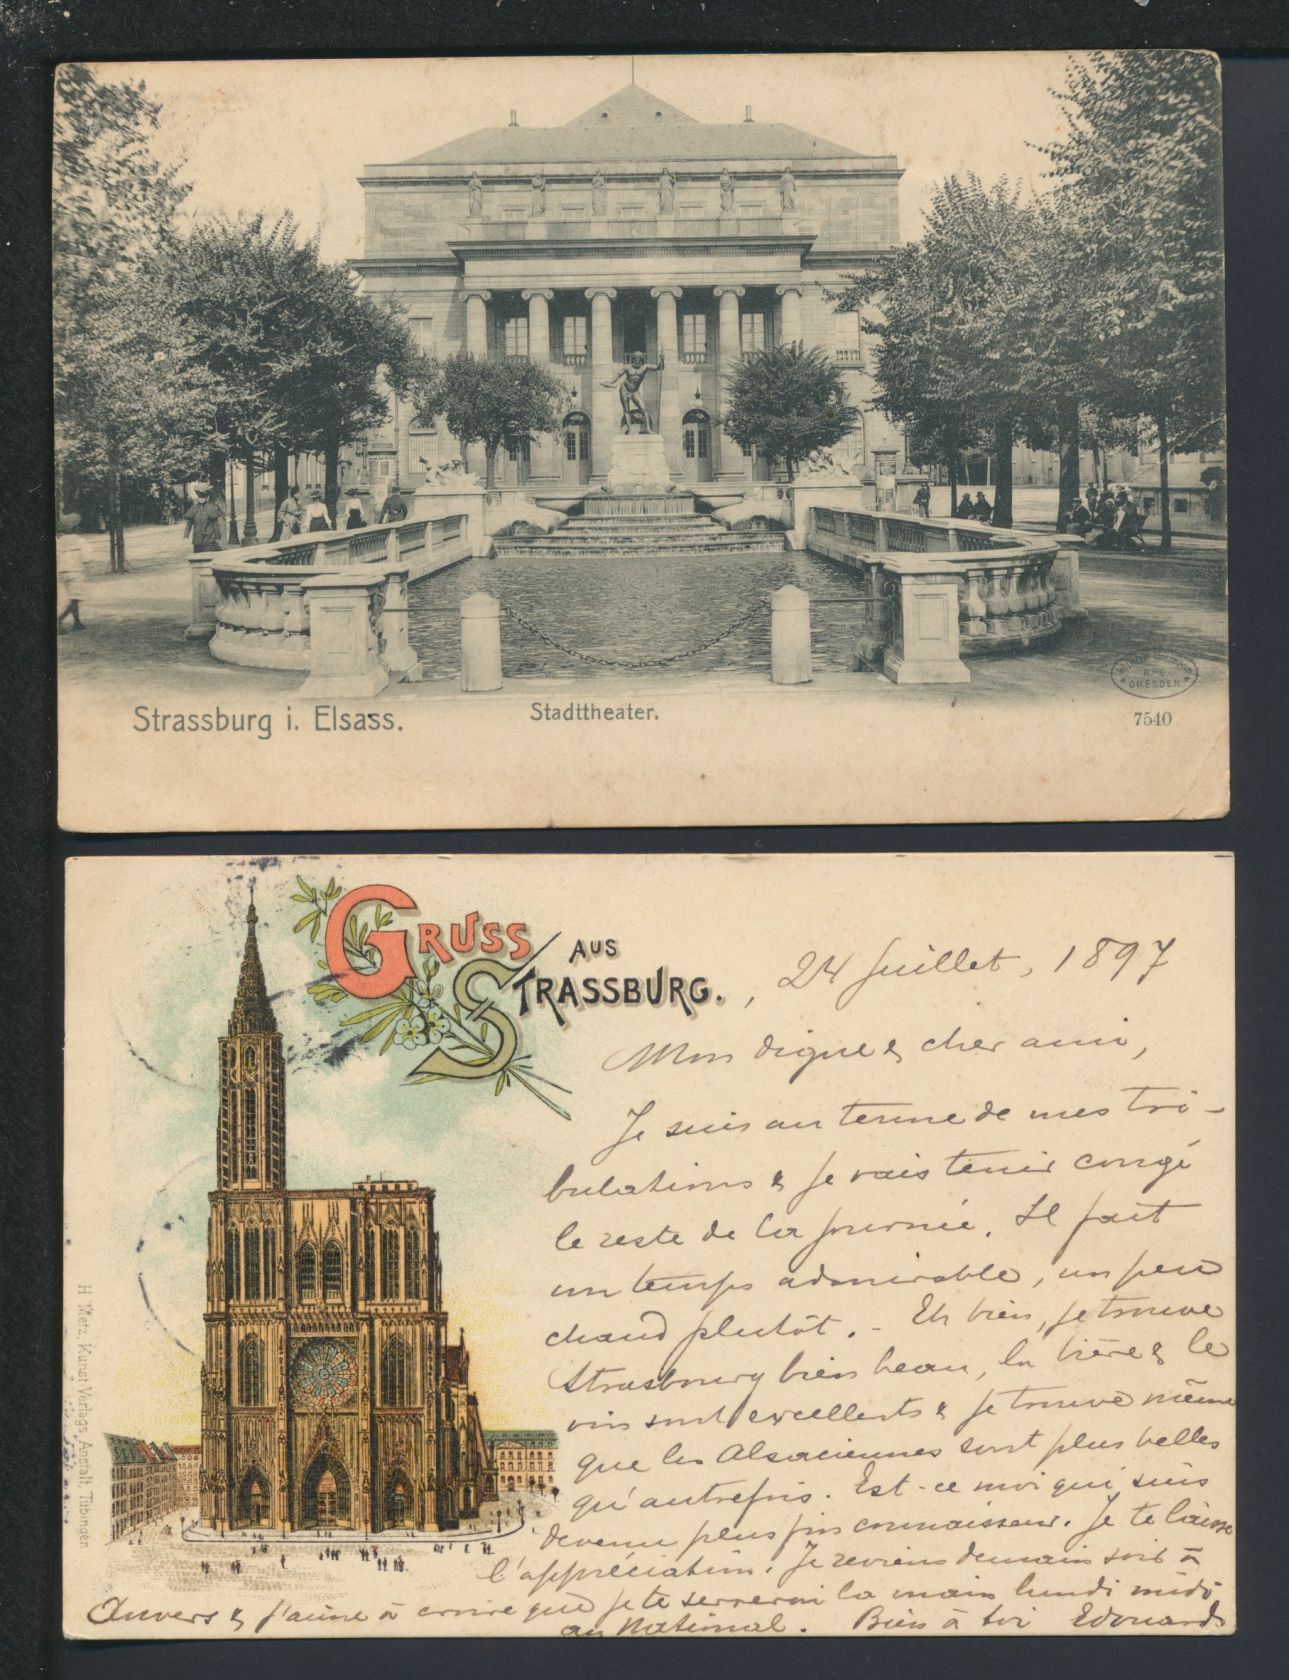 Strassburg i. Elsass.
Stadttheater.
DRESDEN
7540
GRUSS
AUS
STRASSBURG.
, 24 Juillet, 1897
Mon digne & cher ami,
Je suis au terme de mes tri-
bulations & je vais tenir congé
le reste de la journée. Il fait
un temps admirable, un peu
chaud plutôt. - Eh bien, je trouve
Strasbourg bien beau, la bière & le
vin sont excellents & je trouve même
que les Alsaciennes sont plus belles
qu'autrefois. Est-ce moi qui suis
devenu plus fin connaisseur. Je te laisse
l'appréciation. Je reviens demain soir à
Anvers & j'aime à croire que je te serrerai la main lundi midi
au National. Bien à toi Edouard
H. Metz, Kunst-Verlags-Anstalt, Tübingen